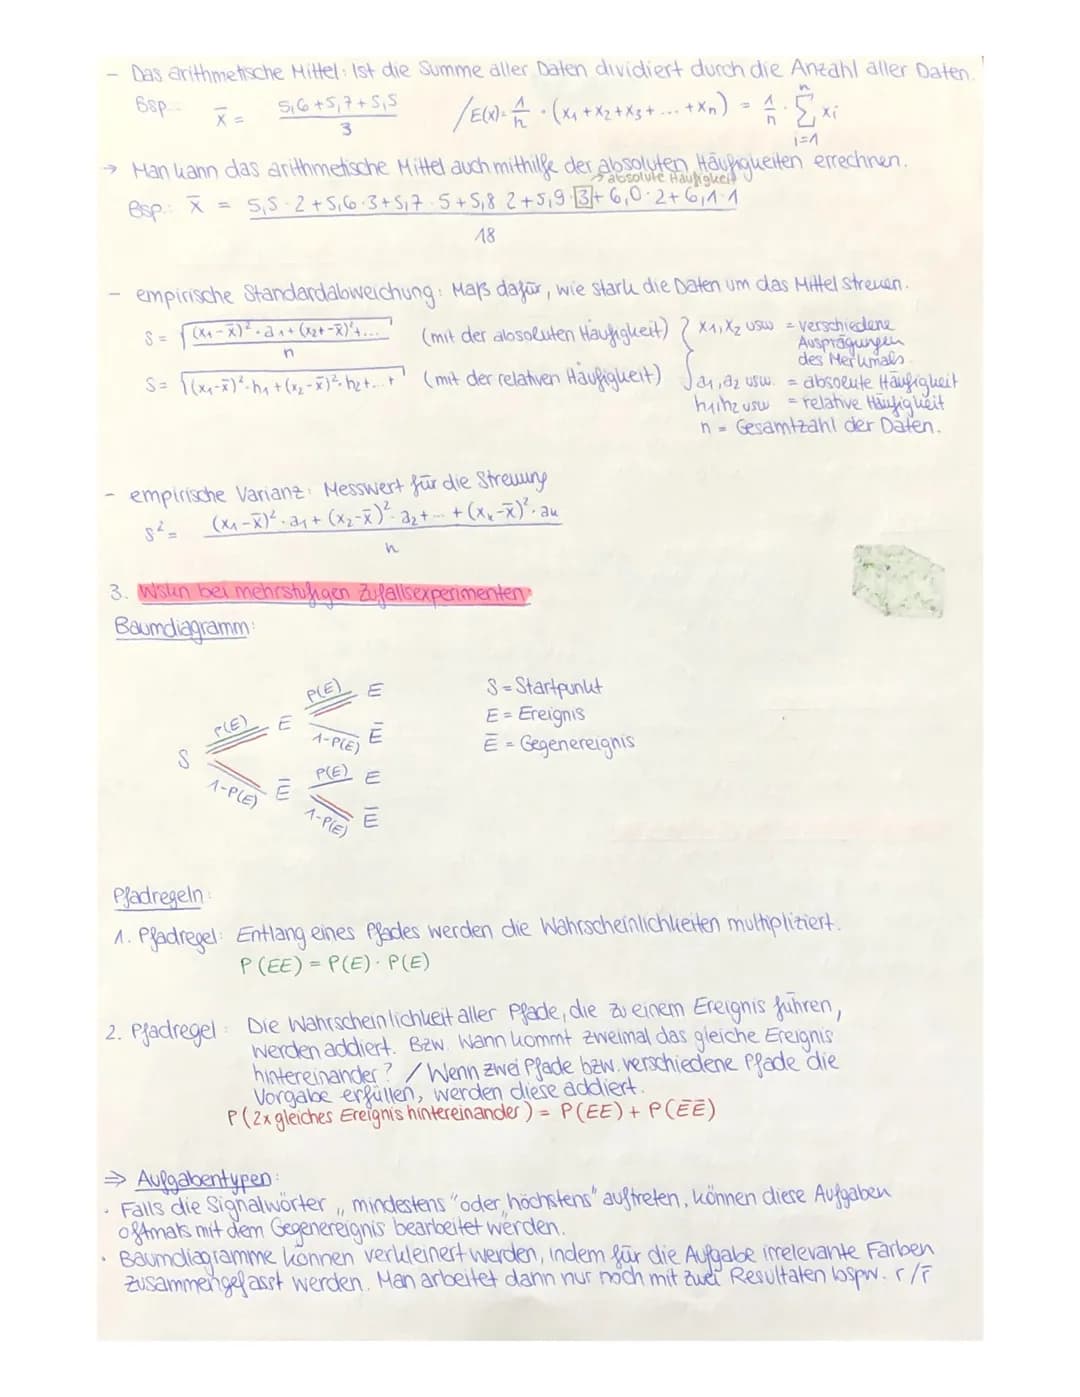 - Das arithmetische Mittel: Ist die Summe aller Daten dividiert durch die Anzahl aller Daten.
Bsp.: x̄ = (5,6 + 5,7 + 5,5) / 3 / E(x) = 1/n · (x₁ + x₂ + x₃ + ... + xₙ) = 1/n · Σ(i=1 bis n) xᵢ
→ Man kann das arithmetische Mittel auch mithilfe der absoluten Häufigkeiten errechnen.
→ absolute Häufigkeit
Bsp.: x̄ = (5,5 · 2 + 5,6 · 3 + 5,7 · 5 + 5,8 2 + 5,9 · 3 + 6,0 · 2 + 6,1 · 1) / 18
- empirische Standardabweichung: Maß dafür, wie stark die Daten um das Mittel streuen.
S = √((x₁ - x̄)² · a₁ + (x₂ + - x̄)² + ... / n) (mit der absoluten Häufigkeit)
S = √((x₁ - x̄)² · h₁ + (x₂ - x̄)² · h₂ + ... + (mit der relativen Häufigkeit)
x₁, x₂ usw = verschiedene
Ausprägungen
des Merkmals
a₁, a₂ usw. = absolute Häufigkeit
h₁, h₂ usw = relative Häufigkeit
n = Gesamtzahl der Daten.
- empirische Varianz: Messwert für die Streuung
s² = ((x₁ - x̄)² · a₁ + (x₂ - x̄)² · a₂ + ... + (xₖ - x̄)² · aₖ) / n
3. Wskn bei mehrstufigen Zufallsexperimenten:
Baumdiagramm:
P(E) E
P(E) E
1-P(E) Ē
S
P(E) E
1-P(E) Ē
1-P(E) Ē
S = Startpunkt
E = Ereignis
Ē = Gegenereignis
Pfadregeln:
1. Pfadregel: Entlang eines Pfades werden die Wahrscheinlichkeiten multipliziert.
P (EE) = P(E) · P(E)
2. Pfadregel: Die Wahrscheinlichkeit aller Pfade, die zu einem Ereignis führen,
werden addiert. Bzw. Wann kommt zweimal das gleiche Ereignis
hintereinander? / Wenn zwei Pfade bzw. verschiedene Pfade die
Vorgabe erfüllen, werden diese addiert.
P (2x gleiches Ereignis hintereinander) = P(EE) + P(ĒĒ)
⇒ Aufgabentypen:
· Falls die Signalwörter „mindestens" oder „höchstens" auftreten, können diese Aufgaben
oftmals mit dem Gegenereignis bearbeitet werden.
· Baumdiagramme können verkleinert werden, indem für die Aufgabe irrelevante Farben
zusammengefasst werden. Man arbeitet dann nur noch mit zwei Resultaten bspw. r/r̄